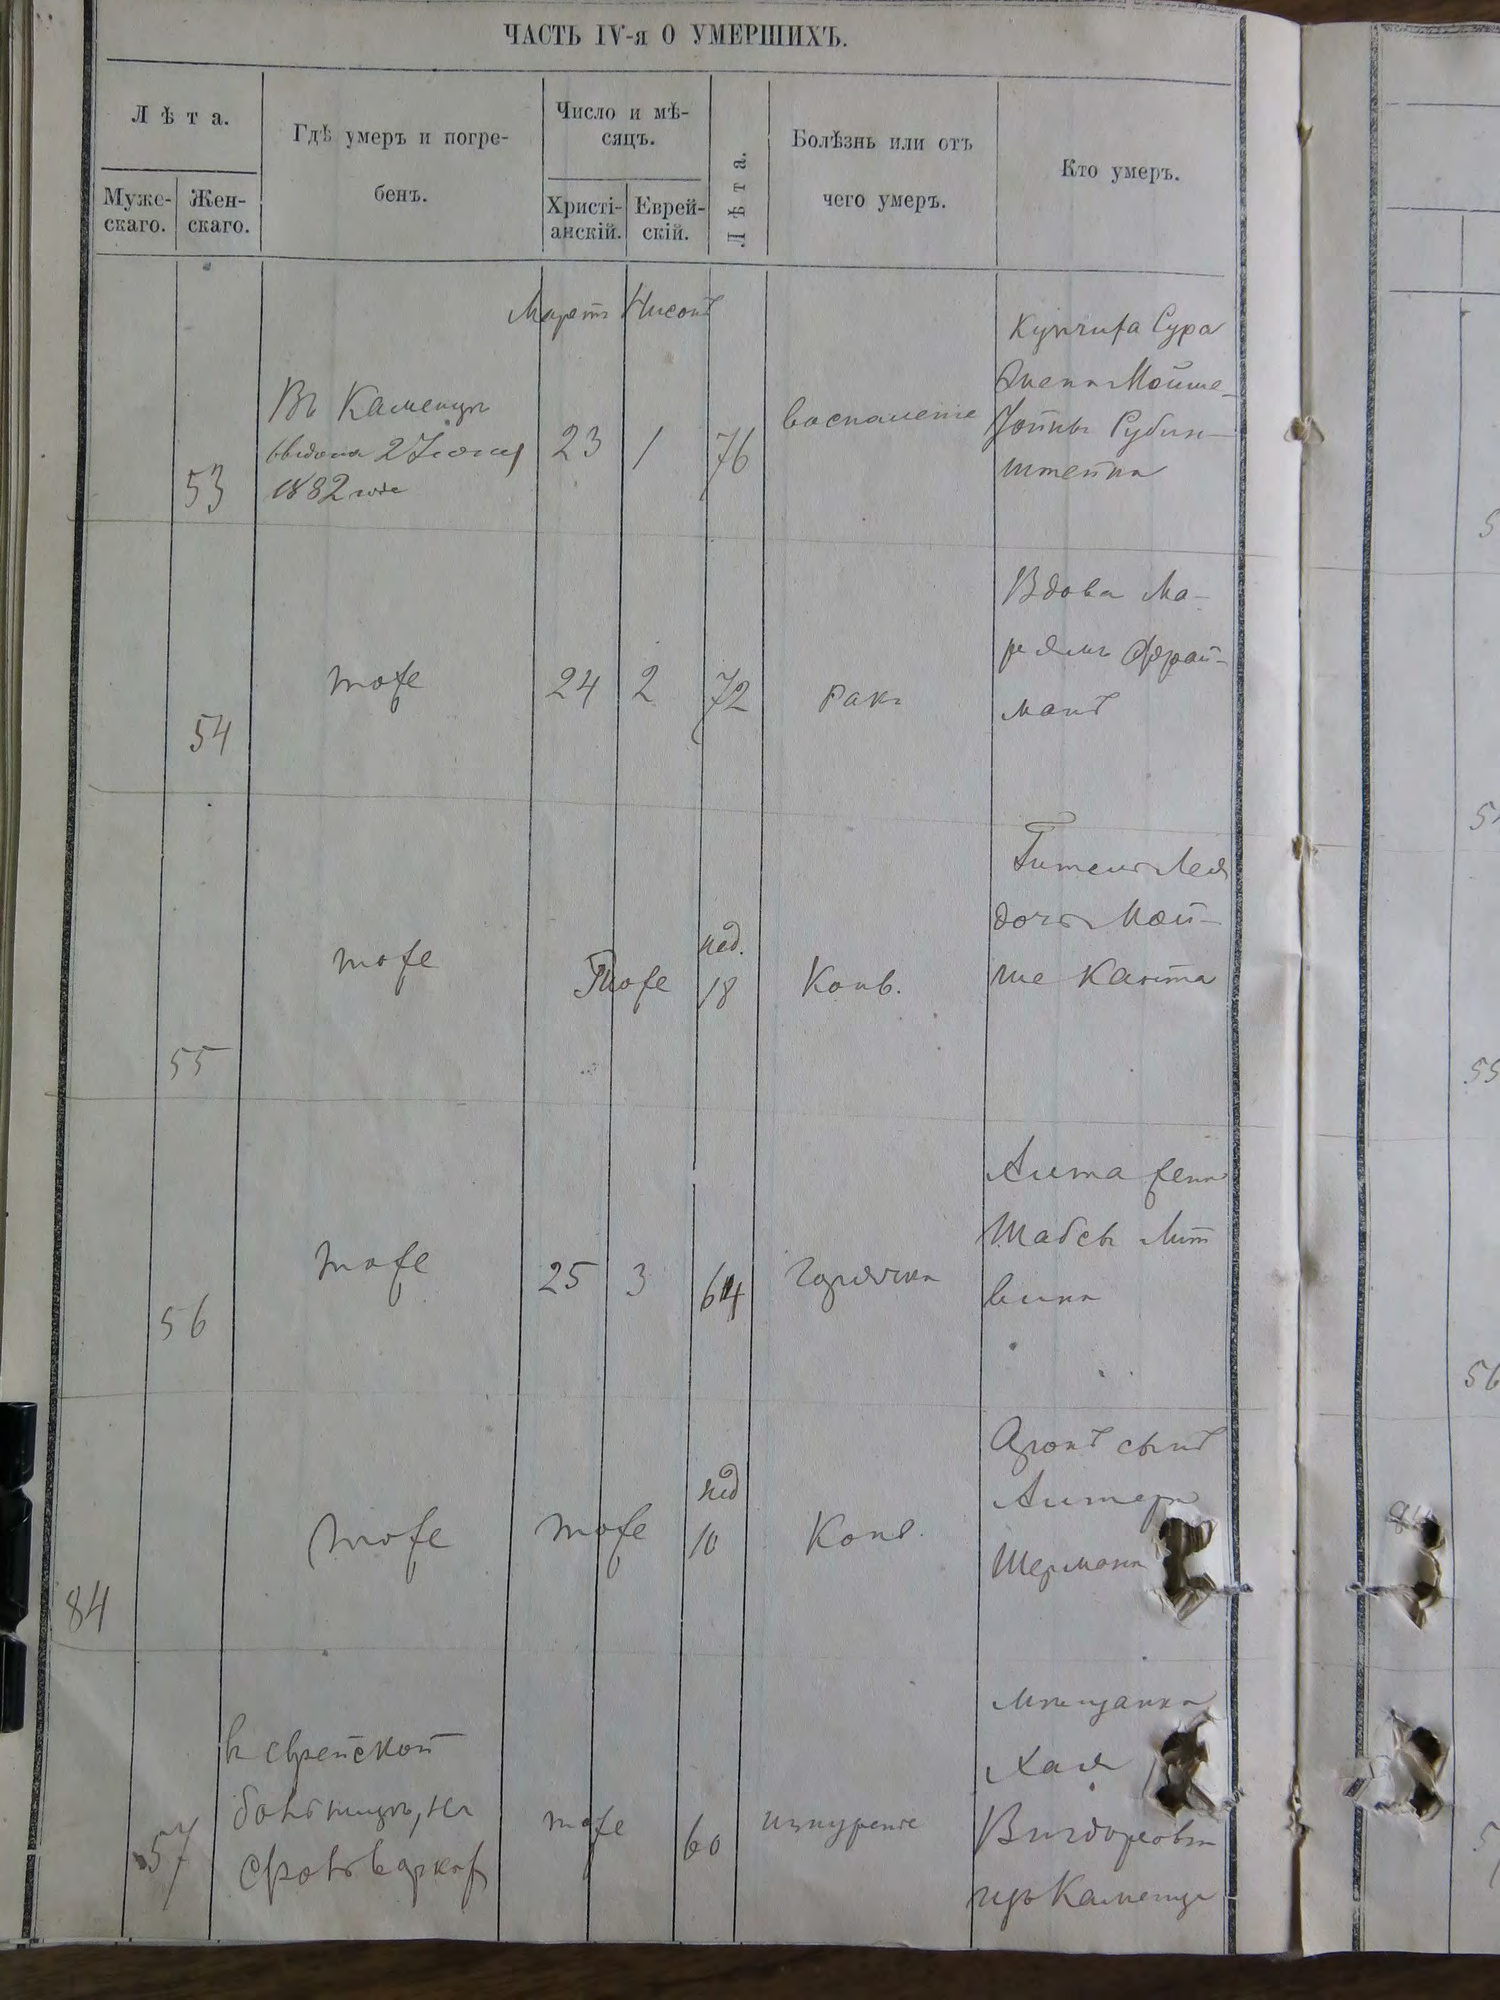 ЧАСТЬ IV-я О УМЕРШИХЪ.
Лѣта.
Муже-
скаго.
Жен-
скаго.
Гдѣ умеръ и погре-
бенъ.
Число и мѣ-
сяцъ.
Христі-
анскій.
Еврей-
скій.
Лѣта.
Болѣзнь или отъ
чего умеръ.
Кто умеръ.
Мартъ Нисонъ
53
Въ Каменцѣ
1882 года
23 1 76
воспаление
Купчиха Сура
жена Мойше
Рубин-
штейна
54
тоже
24 2 72
ракъ
Вдова Ма-
рьямъ Фрай-
манъ
55
тоже
Тоже
нед.
18
Конв.
Гитель Лея
дочь Мой-
ше Канта
56
тоже
25 3 64
Горячка
Жена
Шабсы Лит
вина
84
тоже
тоже
нед
10
Конв.
Аронъ сынъ
Антера
Шермана
57
въ еврейской
больницѣ, на
тоже
60
изнурение
мѣщанка
Хая